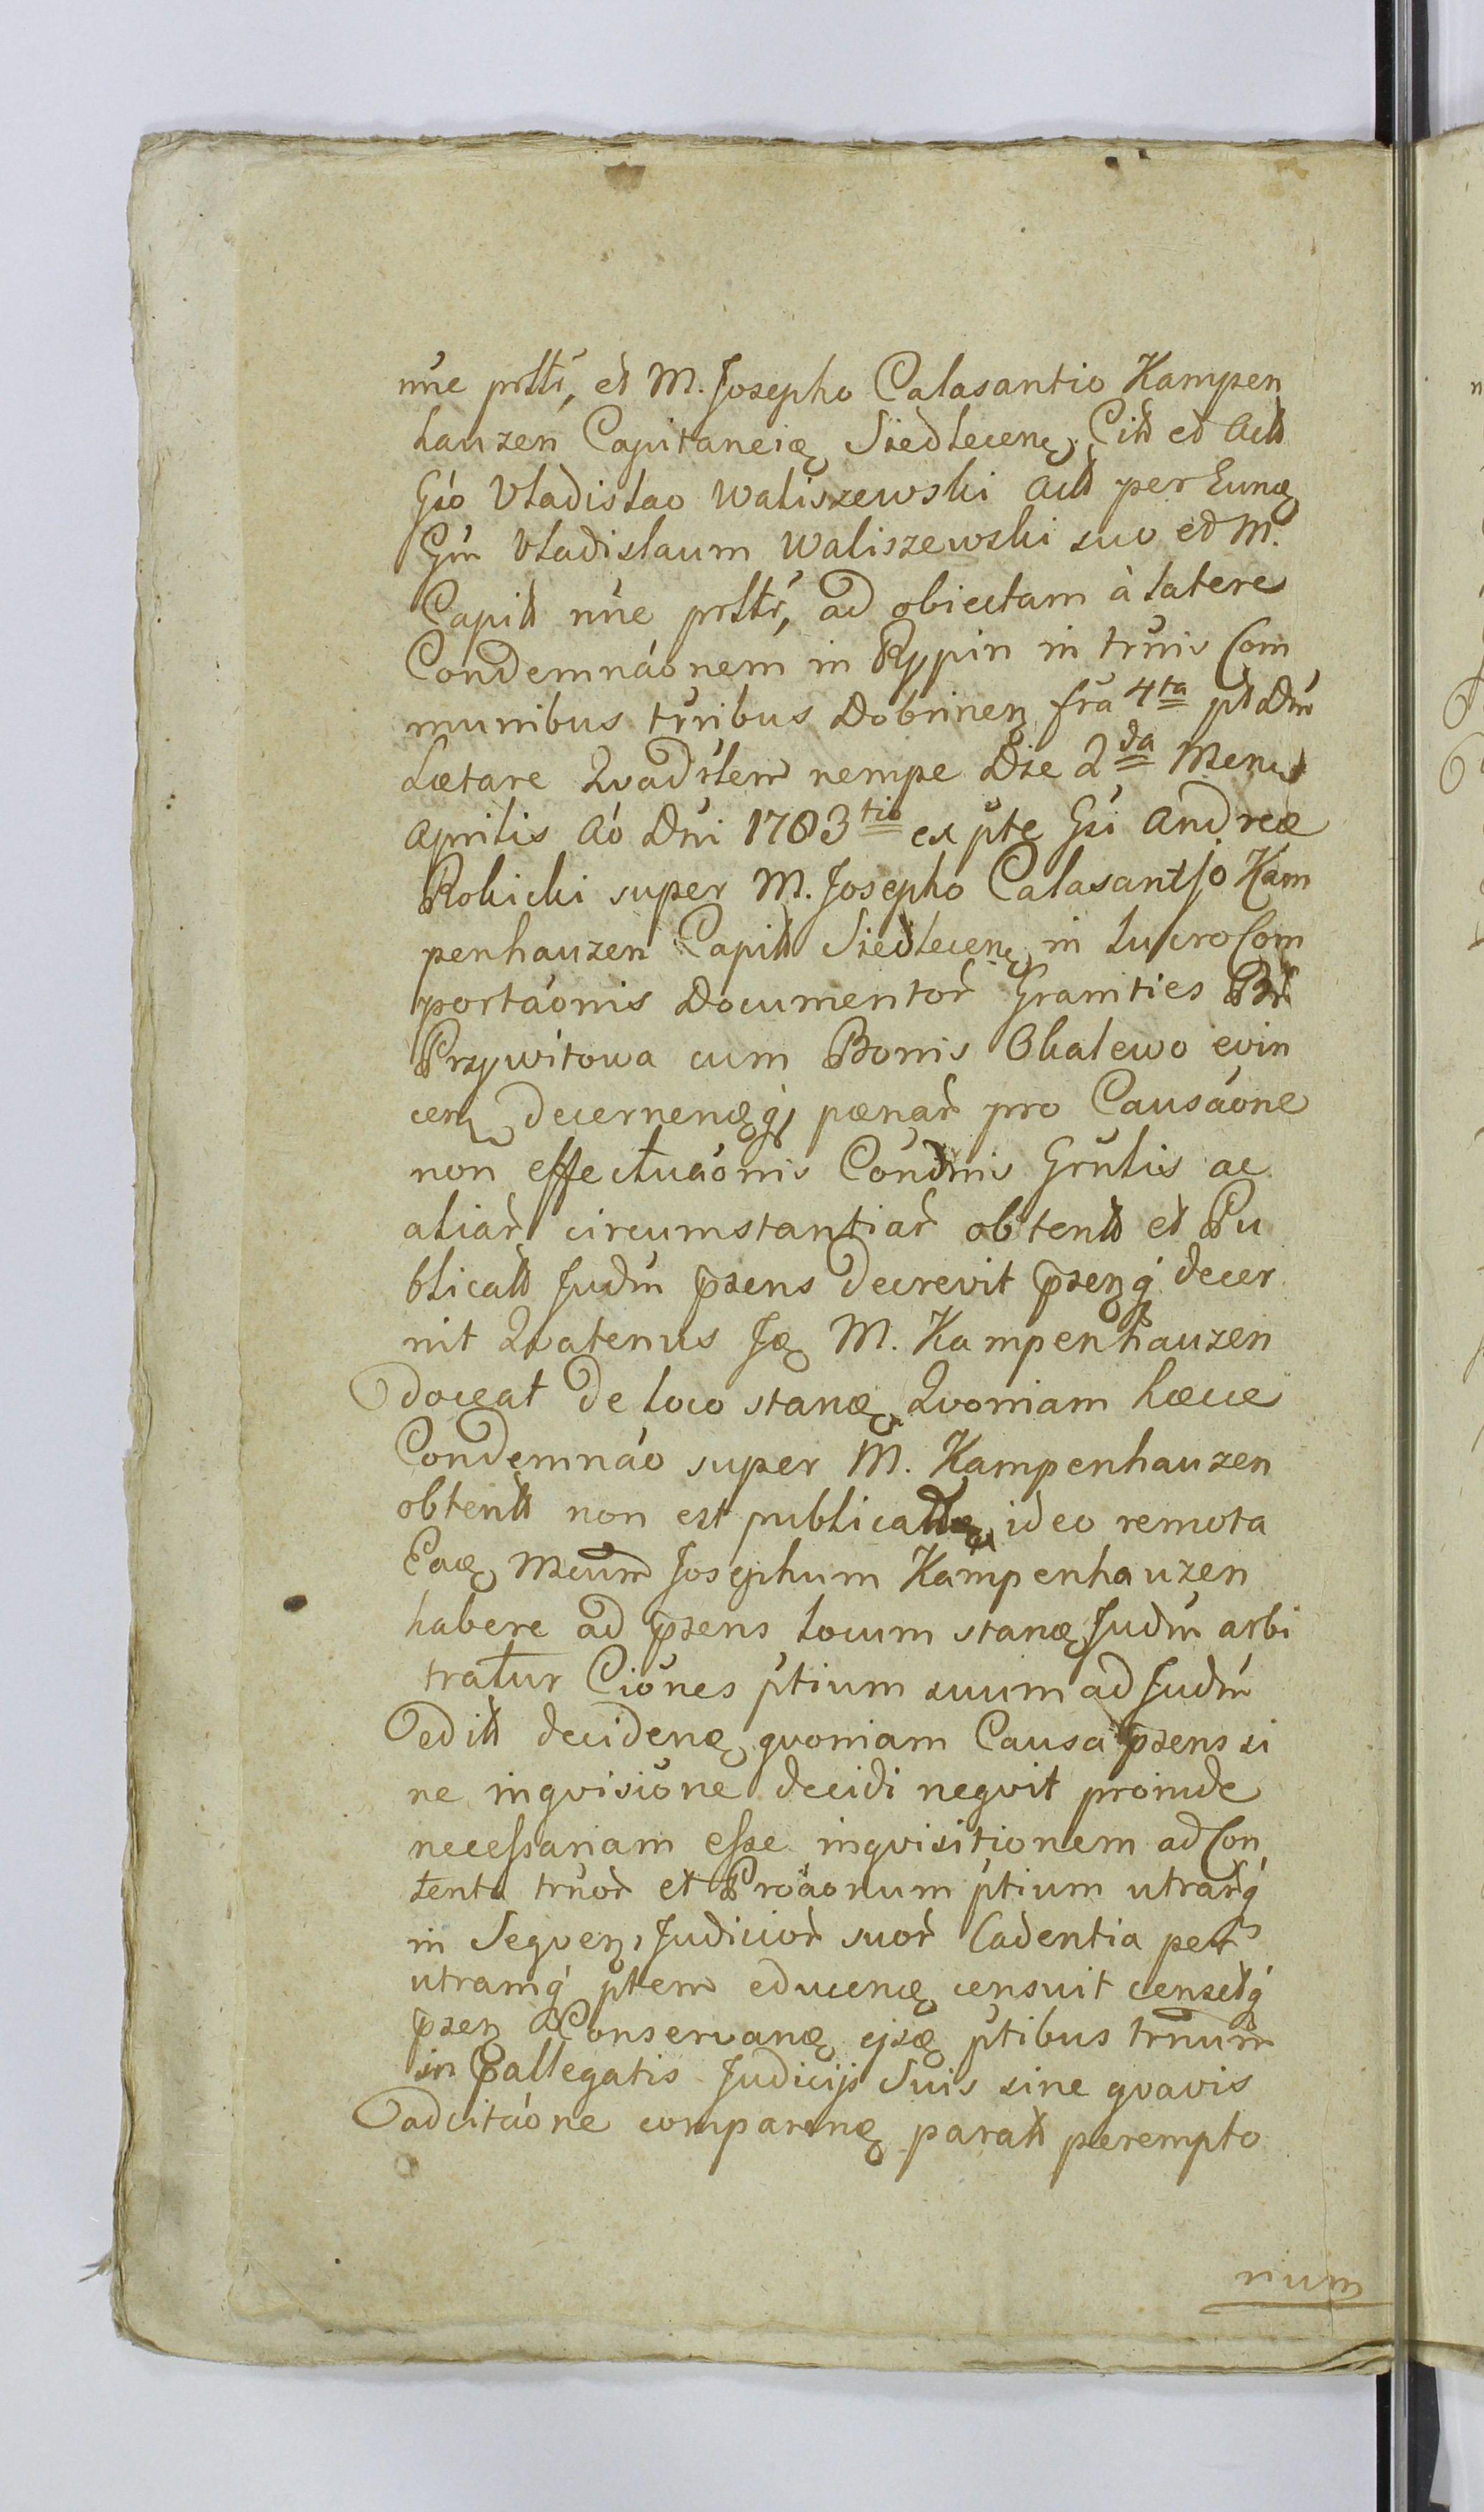 nne prltr, et M. Josepho Calasantio Kampen
hauzen Capitaneię Siedlecenę Citt et Actt
Gso Vladislao Waliszewski Actt per Eunę
Gsn Vladislaum Waliszewski suo et M.
Capitt nne prltr, ad obiectam à latere
Condemnáonem in Rypin in trnis Com
munibus trribus Dobrinen fra 4ta pt Dm
Lætare Qvadrlem nempe Die 2da Mensis
Aprilis Aó Dni 1783tio ex pte Gsi Andreæ
Rokicki super M. Josepho Calasantjo Kam
penhauzen Capitt Siedlecenę in lucro Com
portáonis Documentor Granities Br
Przywitowa cum Bonis Okalewo evin
cen decernenęq pænar pro Causáone
non effectuáonis Condnis Grnlis ac
aliar circumstantiar obtentt et Pu
blicatt Judm pzens decrevit pzenq decer
nit Qvatenus Ję M. Kampenhauzen
doceat de loco stanę Qvoniam hæcce
Condemnáo super M. Kampenhauzen
obtentt non est publicatta, ideo remota
Eaę Mcum Josephum Kampenhauzen
habere ad pzens locum stanę Judm arbi
tratur Ciónes ptium suum ad Judm
editt decidenę qvoniam Causa pzens si
ne inqvisióne decidi neqvit proinde
necessariam esse inqvisitionem ad Con
tenta trnor et Proáonum ptium utrarq
in Seqven, Judicior suor Cadentia per
utramq ptem educenę censuit censetq
pzen Conservanę ejsę ptibus trnum
in pallegatis Judicijs Suis sine qvavis
adcitáone comparenę paratt perempto
rium